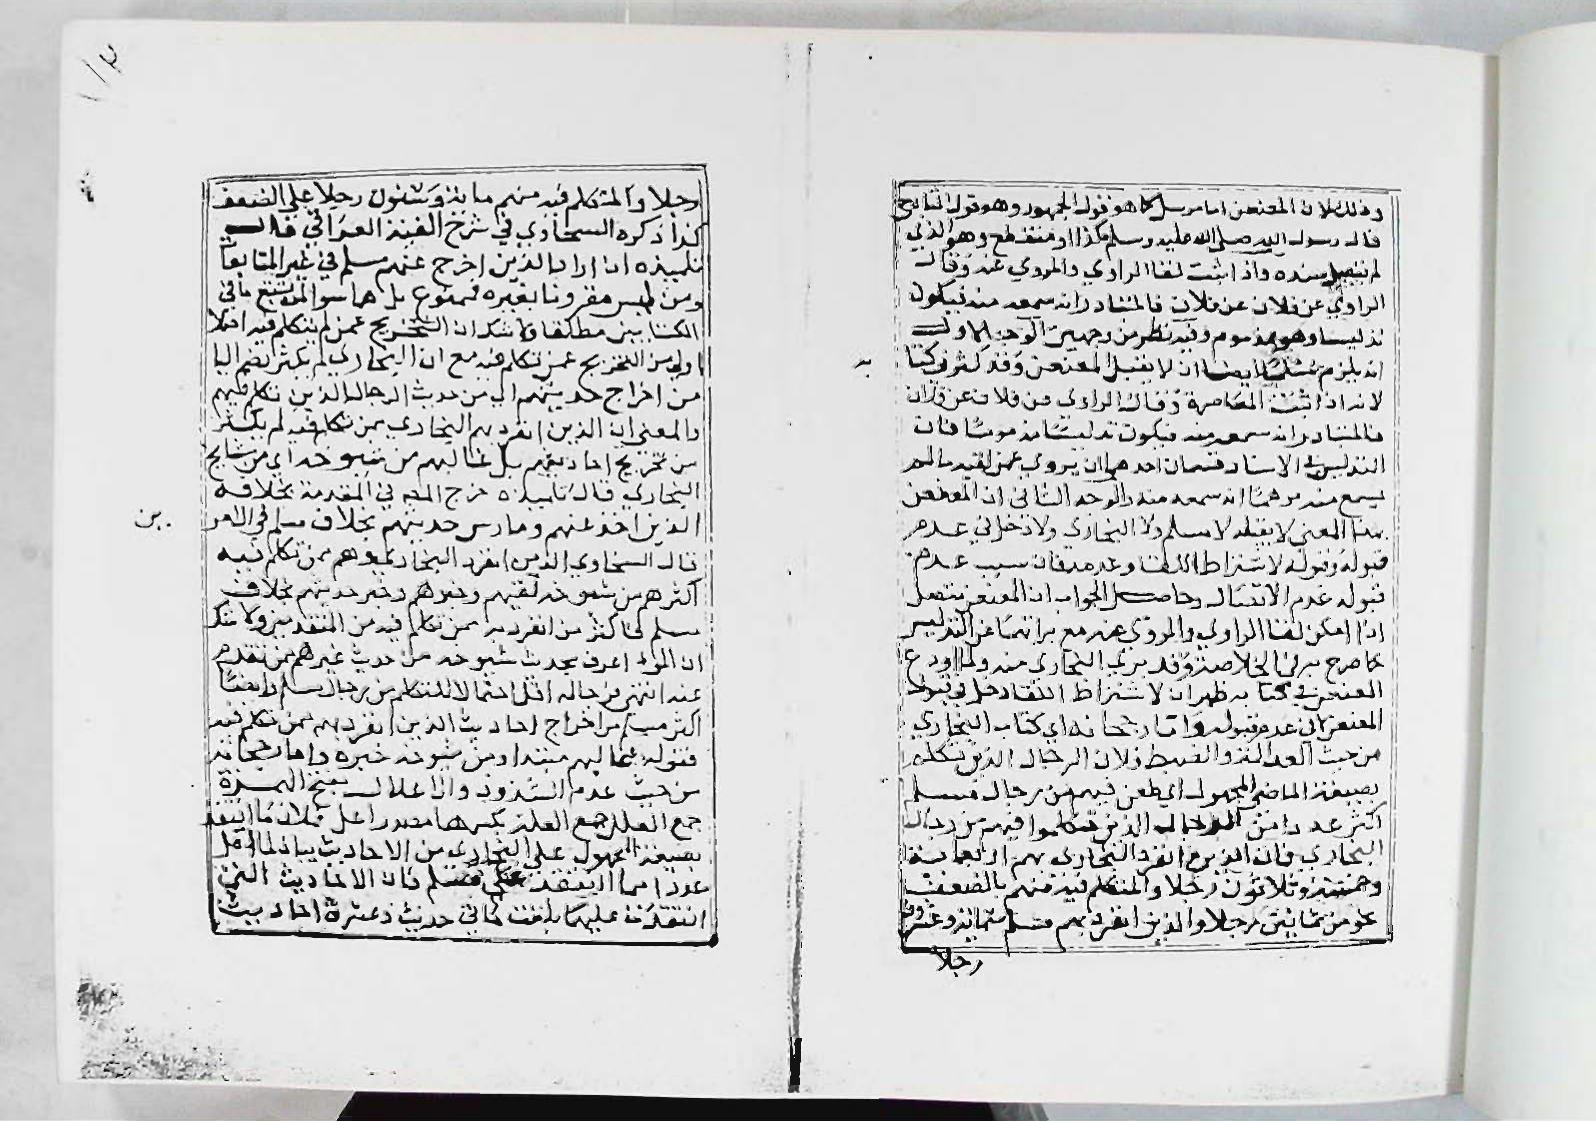 وذلك لان المعنعن اما مرسل كما هو قول الجمهور وهو قول التابعي
قال رسول الله صلى الله عليه وسلم كذا او منقطع وهو الذي
لم يتصل سنده واذا ثبت لقا الراوي والمروي عنه وقال
الراوي عن فلان عن فلان فالمتبادر انه سمعه منه فيكون
تدليسا وهو مذموم وفيه نظر من وجهين الوجه الاول
انه يلزم ايضا ان لا يقبل المعنعن وقد كثر في كتا
به
لانه اذا ثبتت المعاصرة وقال الراوي عن فلان عن فلان
فالمتبادر انه سمعه منه فيكون تدليسا مذموما فان
التدليس في الاسناد قسمان احدهما ان يروي عمن لقيه ما لم
يسمع منه موهما انه سمعه منه والوجه الثاني ان المعنعن
بهذا المعنى لا يقبله لا مسلم ولا البخاري ولا دخل في عدم
قبوله وقبوله لاشتراط اللقا وعدمه فان سبب عدم
قبوله عدم الاتصال وحاصل الجواب ان المعنعن يتصل
اذا امكن لقا الراوي والمروي عنه مع براتهما عن التدليس
كما صرح به في الخلاصة وقد يرى البخاري منه ولما اودع
المعنعن في كتابه ظهر ان لاشتراط اللقا دخل في قبول
المعنعن في عدم قبوله واما رجحانه اي كتاب البخاري
من حيث العدالة والضبط فلان الرجال الذين تكلم
بصيغة الماضي المجهول اي طعن فيهم من رجال مسلم
اكثر عددا من الرجال الذين تكلموا فيهم من رجال
البخاري فان الذين انفرد البخاري بهم اربعماية
وخمسة وثلاثون رجلا والمتكلم فيه منهم بالضعف
نحو من ثمانين رجلا والذين انفرد بهم مسلم ستماية وعشرون
رجلا
رجلا والمتكلم فيه منهم ماية وستون رجلا على الضعف
كذا ذكره السخاوي في شرح الفية العراقي قال
تلميذه ان اراد بالذين اخرج عنهم مسلم في غير المتابعا
ومن ليس مقرونا بغيره فممنوع بل هما سوا
الكتابين مطلقا ولا شك ان التخريج عمن لم يتكلم فيه اصلا
اولى من التخريج عمن تكلم فيه مع ان البخاري لم يكثر بضم اليا
من اخراج حديثهم اي من حديث الرجال الذين تكلم فيهم
والمعنى ان الذين انفرد بهم البخاري ممن تكلم فيه لم يكثر
من تخريج احاديثهم بل غالبهم من شيوخه اي من مشايخ
البخاري قال تلميذه خرج المص في المقدمة بخلافه
الذين اخذ عنهم ومارس حديثهم بخلاف مسلم في الامر
ين
قال السخاوي الذين انفرد البخاري وهم ممن تكلم فيه
اكثرهم من شيوخه لقيهم وخبرهم وخبر حديثهم بخلاف
مسلم فاكثر من انفرد به ممن تكلم فيه من المتقدمين ولا شك
ان المرء اعرف بحديث شيوخه من حديث غيرهم ممن تقدم
عنه انتهى فرجاله اقل احتمالا للتكلم من رجال مسلم وايضا
اكثر مسلم من اخراج احاديث الذين انفرد بهم ممن تكلم فيه
فقوله غالبهم مبتدا ومن شيوخه خبره واما رجحانه
من حيث عدم الشذوذ والاعلال بفتح الهمزة
جمع العلل جمع العلة وبكسرها مصدر اعل فلان ما انتقد
بصيغة المجهول على البخاري من الاحاديث بيان لما اقل
عددا مما انتقد على مسلم فان الاحاديث التي
انتقدت عليهما بلغت مائتي حديث وعشرة احاديث